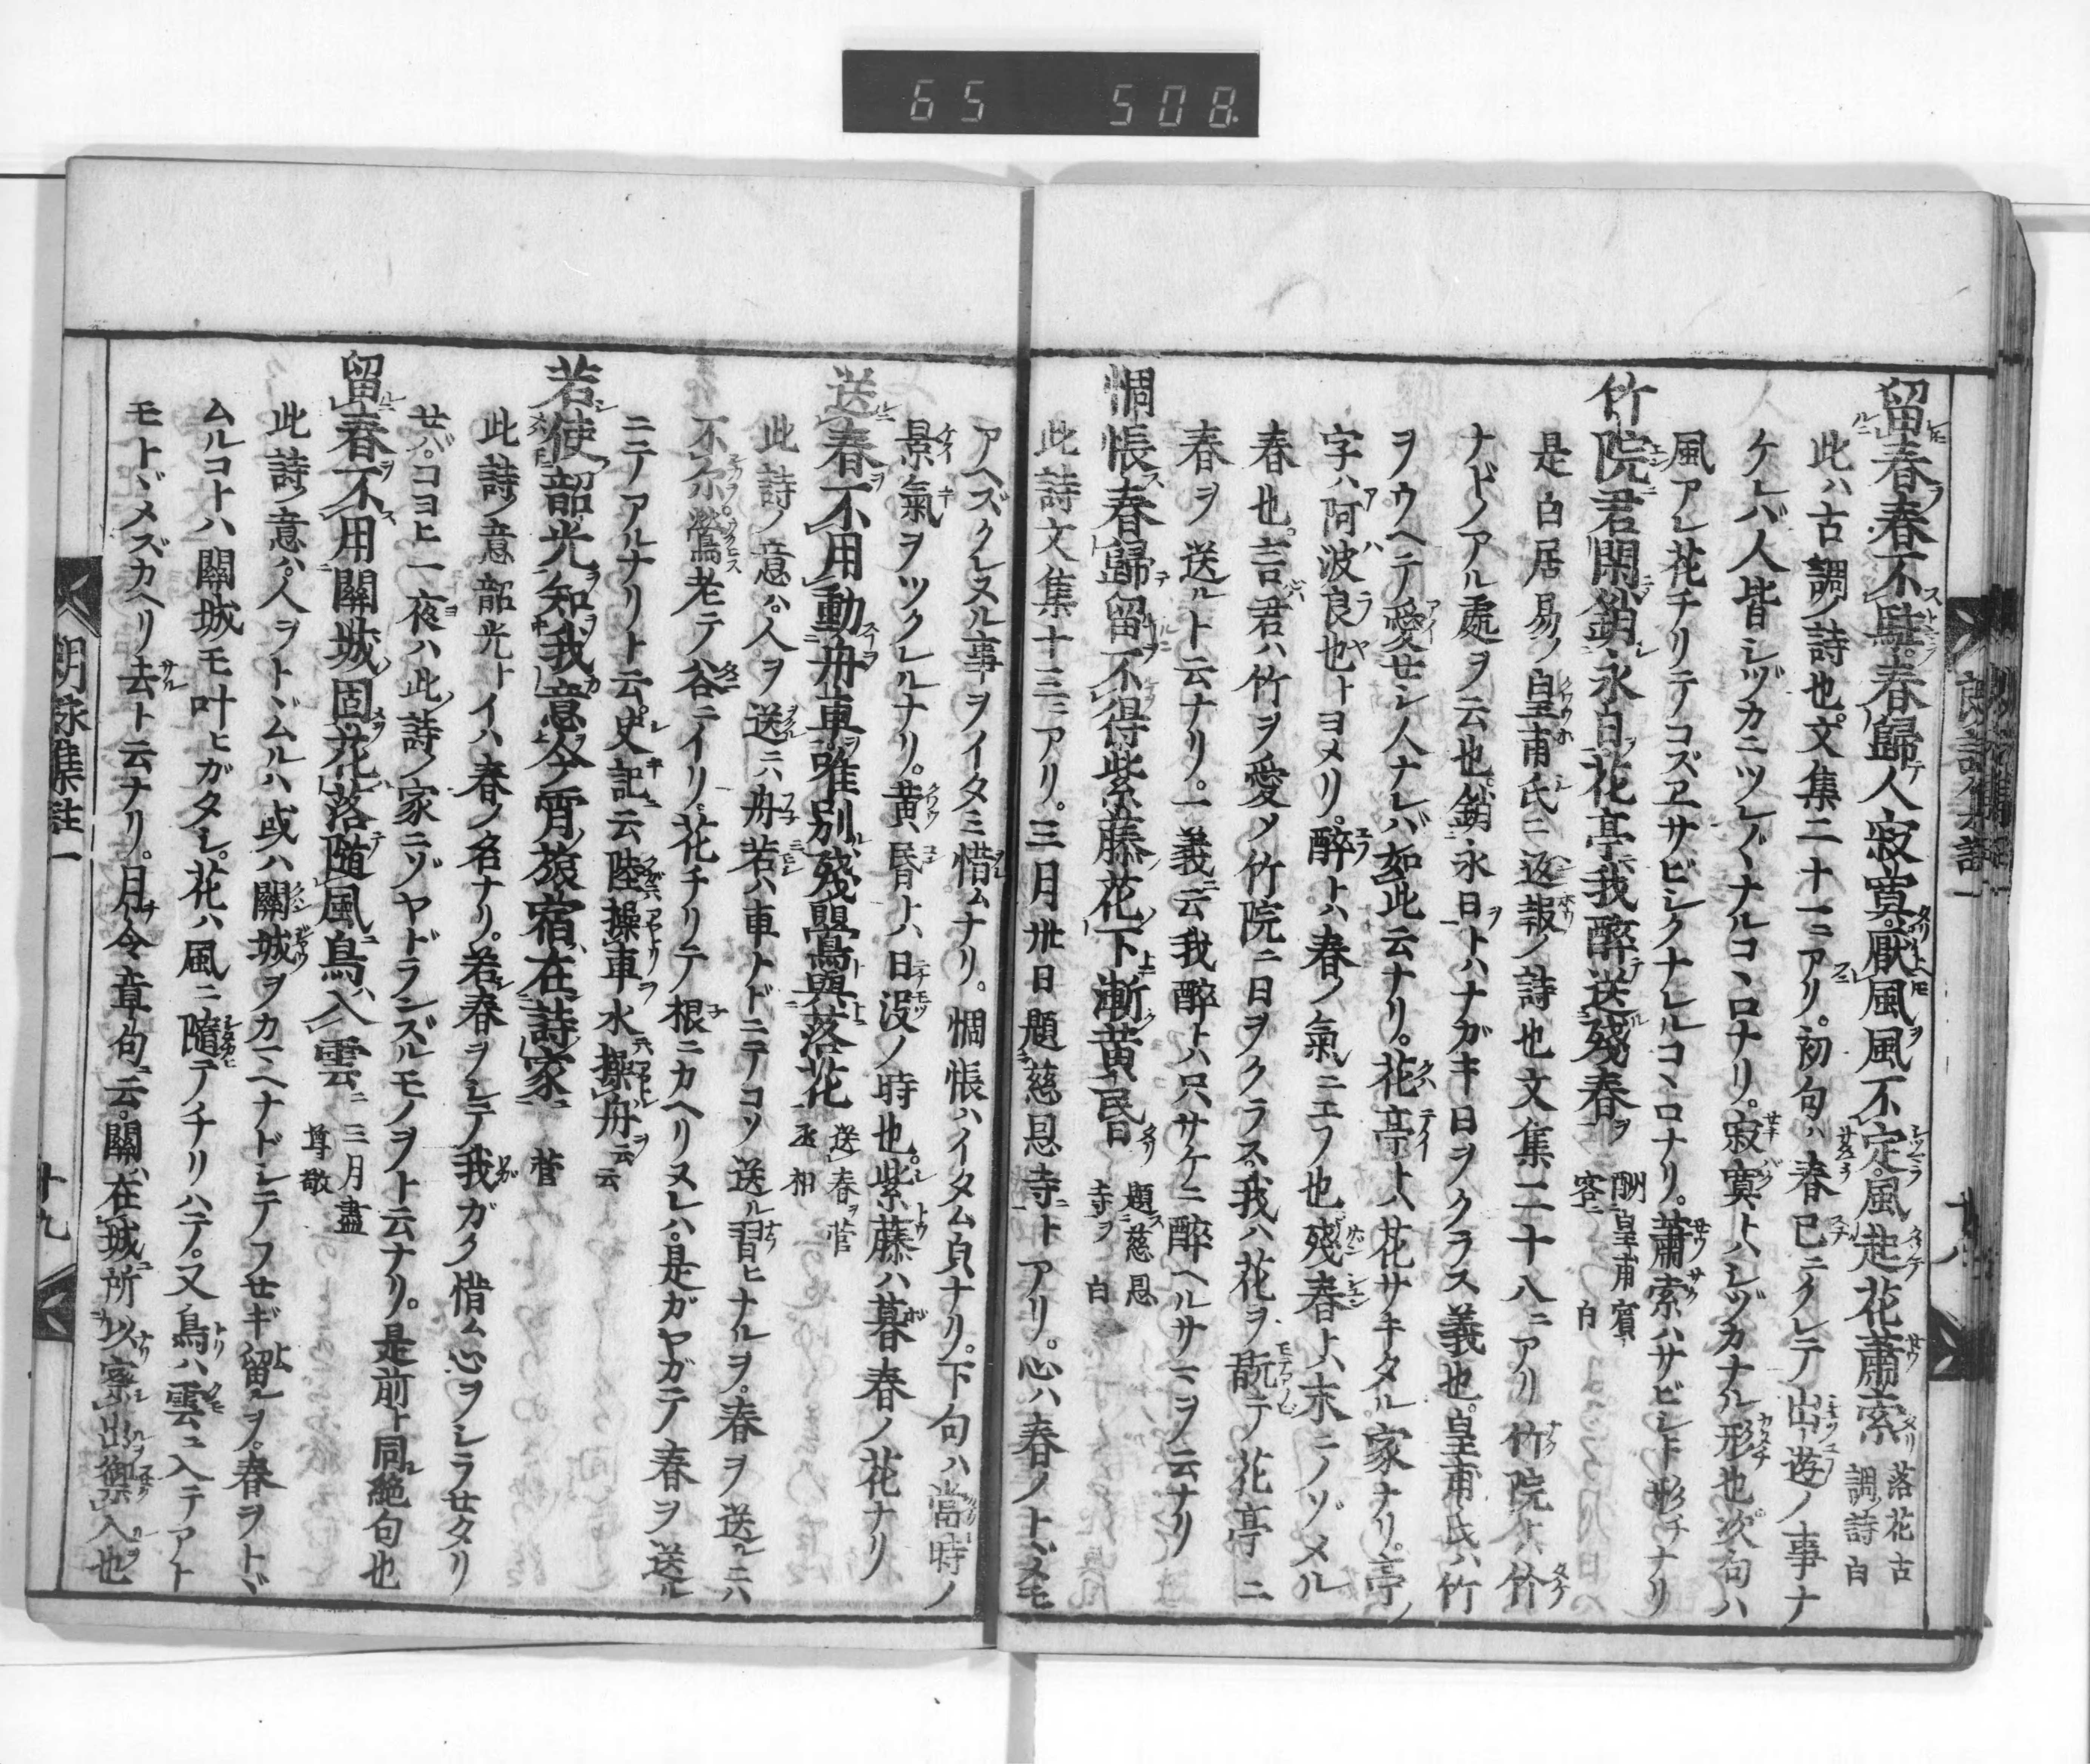 65 508.
留春春不駐春歸人寂寞厭風風不定風起花蕭索 落花古調詩白
此ハ古調ノ詩也文集二十一ニアリ。初句ハ春已ニクレテ出遊ノ事ナ
ケレバ人皆シヅカニツレ〴〵ナルコヽロナリ。寂寞トハシヅカナル形也次句ハ
風アレ花チリテコズヱサビシクナレルコヽロナリ。蕭索ハサビシキ形チナリ
竹院君閑銷永日花亭我醉送殘春 酬皇甫賓客 白
是白居易ノ皇甫氏ニ返報ノ詩也文集二十八ニアリ竹院ト竹
ナドノアル處ヲ云也銷永日トハナガキ日ヲクラス義也皇甫氏ハ竹
ヲウヘテ愛セシ人ナレバ如此云ナリ。花亭トハ花サキタル家ナリ。亭ノ
字ハ阿波良也トヨメリ。醉トハ春ノ氣ニエフ也殘春トハ末ニノゾメル
春也。言君ハ竹ヲ愛メ竹院ニ日ヲクラス我ハ花ヲ翫テ花亭ニ
春ヲ送ルト云ナリ。一義云我醉トハ只サケニ醉ヘルサマヲ云ナリ
惆悵春歸留不得紫藤花下漸黄昏 題慈恩寺 白
此詩文集十三ニアリ。三月卅日題慈恩寺ニトアリ。心ハ春ノトヾメモ
アヘズクレヌル事ヲイタミ惜ムナリ。惆悵ハイタム皃ナリ。下句ハ當時ノ
景氣ヲツクレルナリ。黄昏トハ日没ノ時也紫藤ハ暮春ノ花ナリ
送春不用動舟車唯別殘鸎與落花 送春 菅丞相
此詩ノ意ハ人ヲ送ニハ舟若ハ車ナドニテコソ送ル習ヒナルヲ。春ヲ送ルニハ
不尓鶯老テ谷ニイリ。花チリテ根ニカヘリヌレハ。是ガヤガテ春ヲ送ル
ニテアルナリト云。史記云陸操車水操舟云云
若使韶光知我意今宵旅宿在詩家 菅
此詩ノ意韶光トイハ春ノ名ナリ。若春ヲシテ我ガク惜ム心ヲシラセタリ
セバ。コヨヒ一夜ハ此ノ詩ノ家ニゾヤドランズルモノヲト云ナリ。是前ト同絶句也
留春不用關城固花落隨風鳥入雲 三月盡 尊敬
此詩ノ意ハ人ヲトヾムルハ或ハ關城ヲカマヘナドシテフセギ留ルヲ。春ヲトヾ
ムルコトハ關城モ叶ヒガタシ。花ハ風ニ隨テチリハテ。又鳥ハ雲ニ入テアト
モトヾメズカヘリ去ト云ナリ。月令章句云。關在城所以察出禦入也
朗詠集註一
十九